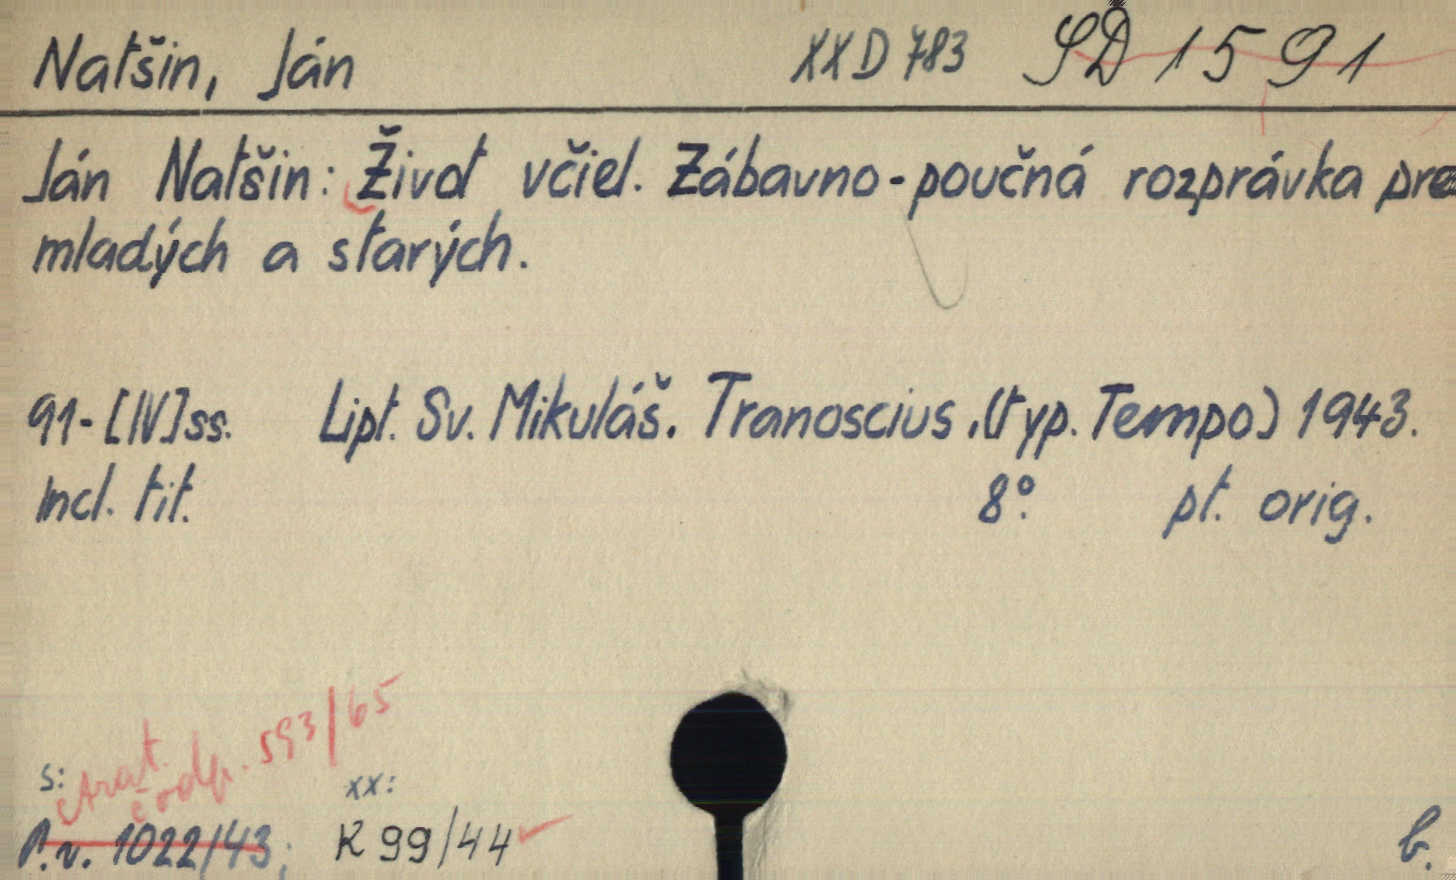 Natšin, Ján XX D 783 SD 1591
Ján Natšin: Život včiel. Zábavno-poučná rozprávka pre
mladých a starých.
91-[IV]ss. Lipt. Sv. Mikuláš. Tranoscius.(typ. Tempo) 1943.
Incl. tit. 8°. pt. orig.
strat.
č odp. 593/65
s: xx:
P.v. 1022/43; K 99/44
b.